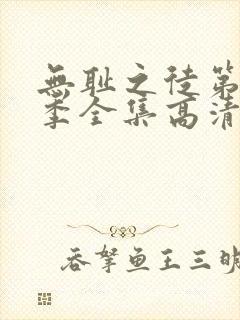 無耻之徒第
季全集高清
吞拏鱼王三明